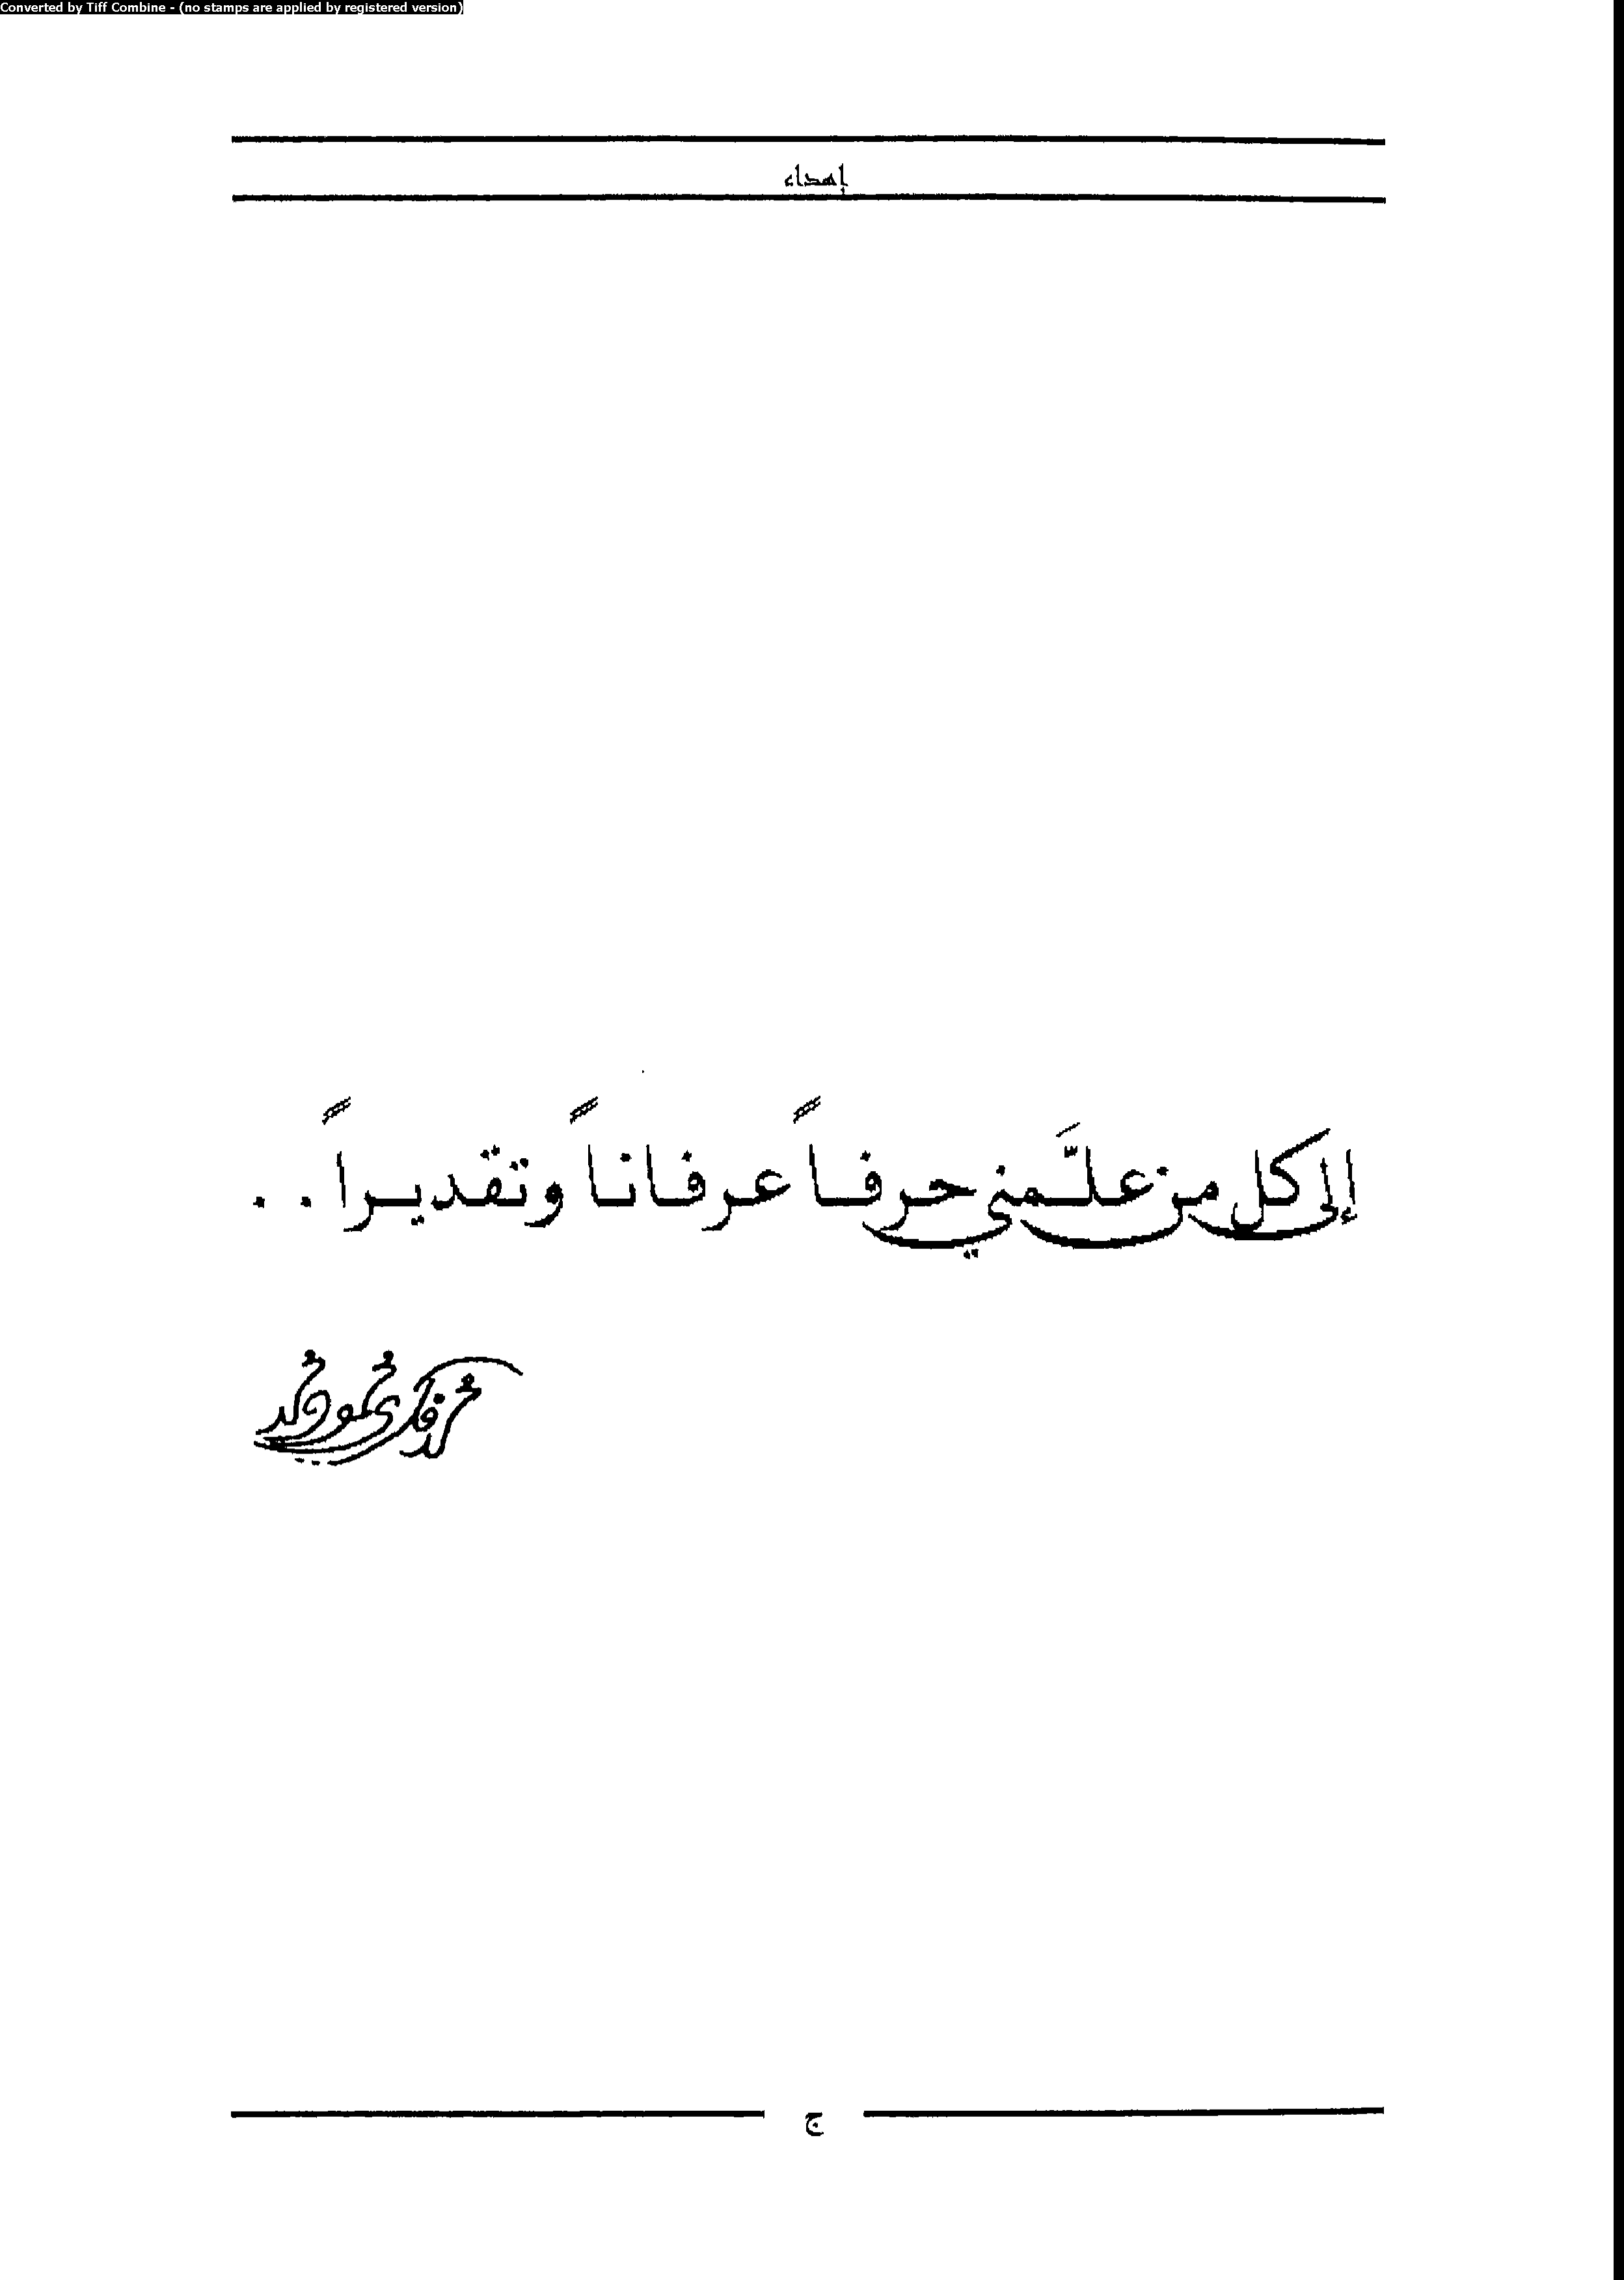 Converted by Tiff Combine - (no stamps are applied by registered version)
إهداء
إلى كل من علَّمني حرفاً عرفاناً وتقديراً . .
محمد فكري محمود محمد
ج